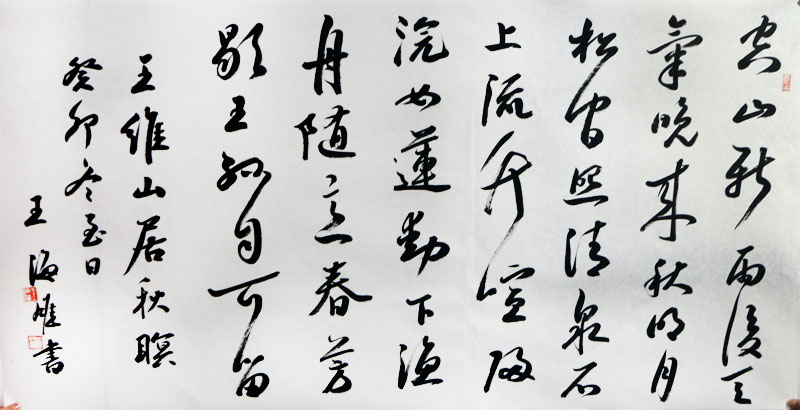 空山新雨後天
氣晚來秋明月
松間照清泉石
上流竹喧歸
浣女蓮動下漁
舟随意春芳
歇王孫自可留
王維山居秋暝
癸卯冬至日
王海雄書